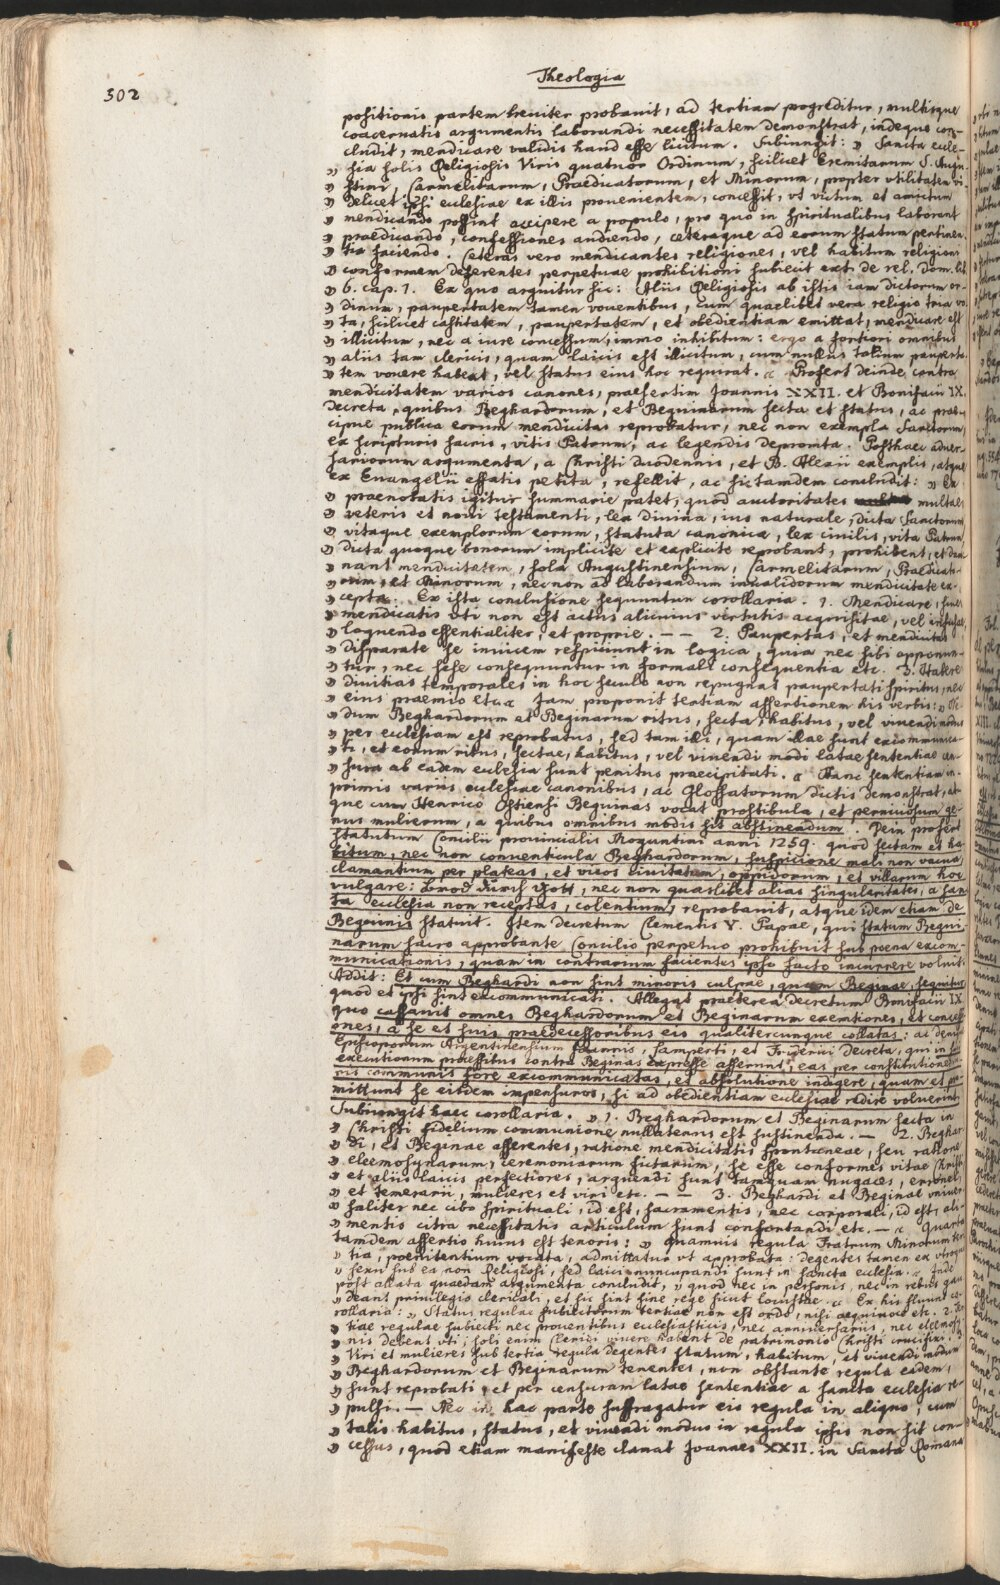 302
Theologia
positionis partem breviter probavit, ad tertiam progreditur, multisque
coacervatis argumentis laborandi necessitatem demonstrat, indeque con-
cludit, mendicare validis haud esse licitum. Subiungit: „ Sancta eccle-
„ sia solis Religiosis Viris quatuor Ordinum, scilicet Eremitarum S. Augu-
„ stini, Carmelitarum, Praedicatorum, et Minorum, propter utilitatem vi-
„ delicet ipsi ecclesiae ex illis provenientem, concessit, vt victum et amictum
„ mendicando possint accipere a populo, pro quo in spiritualibus laborant
„ praedicando, confessiones audiendo, ceteraque ad eorum statum pertinen-
„ tia faciendo. Ceteras vero mendicantes religiones, vel habitum religioni
„ conformem deferentes perpetuae prohibitioni subiecit ext. de rel. Dom. lib.
„ 6. cap. 1. Ex quo arguitur sic: Aliis Religiosis ab istis iam dictorum or-
„ dinum, paupertatem tamen voventibus, cum quaelibet vera religio tria vo-
„ ta, scilicet castitatem, paupertatem, et obedientiam emittat, mendicare est
„ illicitum, nec a iure concessum, immo inhibitum: ergo a fortiori omnibus
„ aliis tam clericis, quam laicis est illicitum, cum nullus talium pauperta-
„ tem vovere habeat, vel status eius hoc requirat. „ Profert deinde contra
mendicitatem varios canones, praesertim Joannis XXII. et Bonifacii IX.
decreta, quibus Beghardorum, et Beguinarum secta et status, ac prae-
cipue publica eorum mendicitas reprobatur, nec non exempla Sanctorum,
ex scripturis sacris, vitis Patrum, ac legendis depromta. Posthaec adver-
sariorum argumenta, a Christi duodennis, et B. Alexii exemplis, atque
ex Euangelii effatis petita, refellit, ac sic tamdem concludit: „ Ex
„ praenotatis igitur summarie patet, quod auctoritates multae
„ veteris et novi testamenti, lex divina, ius naturale, dicta Sanctorum
„ vitaque exemplorum eorum, statuta canonica, lex civilis, vita Patrum,
„ dicta quoque bonorum implicite et explicite reprobant, prohibent, et dam-
„ nant mendicitatem, sola Augustinensium, Carmelitarum, Praedicato-
„ rum, et Minorum, nec non ad laborandum invalidorum mendicitate ex-
„ cepta. Ex ista conclusione sequuntur corollaria. 1. Mendicare, sive
„ mendicatis vti non est actus alicuius virtutis acquisitae, vel infusae,
„ loquendo essentialiter, et proprie. — — 2. Paupertas, et mendicitas
„ disparate se invicem respiciunt in logica, quia nec sibi opponun-
„ tur, nec sese consequuntur in formali consequentia etc. 3. Habere
„ divitias temporales in hoc seculo non repugnat paupertati spiritus, nec
„ eius praemio etc. „ Jam proponit tertiam assertionem his verbis: „ Ne-
„ dum Beghardorum et Beginarum ritus, secta, habitus, vel vivendi modus
„ per ecclesiam est reprobatus, sed tam illi, quam illae sunt excommunica-
„ ti, et eorum ritus, sectae, habitus, vel vivendi modi latae sententiae cen-
„ sura ab eadem ecclesia sunt penitus praecipitati. „ Hanc sententiam in-
primis variis ecclesiae canonibus, ac Glossatorum dictis demonstrat, at-
que cum Henrico Ostiensi Beguinas vocat prostibula, et perniciosum ge-
nus mulierum, a quibus omnibus modis sit abstinendum. Dein profert
statutum Concilii provincialis Moguntini anni 1259. quod sectam et ha-
bitum, nec non conventicula Beghardorum, suspicione mali non vacua
clamantium per plateas, et vicos civitatum, oppidorum, et villarum hoc
vulgare: Brod durch Gott, nec non quaslibet alias singularitates, a san-
ta ecclesia non receptas, colentium, reprobavit, atque idem etiam de
Beguinis statuit. Item decretum Clementis V. Papae, qui statum Begui-
narum sacro approbante Concilio perpetuo prohibuit sub poena excom-
municationis, quam in contrarium facientes ipso facto incurrere voluit.
Addit: Et cum Beghardi non sint minoris culpae, quam Beginae, sequitur
quod et ipsi sint excommunicati. Allegat praeterea Decretum Bonifacii IX.
quo cassavit omnes Beghardorum et Beginarum exemtiones, et concessi-
ones, a se et suis praedecessoribus eis qualitercunque collatas: ac denique
Episcoporum Argentinensium Joannis, Lamperti, et Friderici Decreta, qui in
executionum processibus contra Beginas expresse asserunt, eas per constitutione
ris communis fore excommunicatas, et absolutione indigere, quam et pro-
mittunt se eisdem impensuros, si ad obedientiam ecclesiae redire voluerint.
Subiungit haec corollaria. „ 1. Beghardorum et Beginarum secta in
„ Christi fidelium communione nullatenus est sustinenda. — 2. Beghar-
„ di, et Beginae asserentes, ratione mendicitatis spontaneae, seu ratione
„ eleemosynarum, ceremoniarum fictarum, se esse conformes vitae Christi
„ et aliis laicis perfectiores, arguendi sunt tamquam nugaces, erronei,
„ et temerarii, mulieres et viri etc. — — 3. Beghardi et Beginae univer-
„ saliter nec cibo spirituali, id est, sacramentis, nec corporali, id est, ali-
„ mentis citra necessitatis articulum sunt confortandi etc. — „ Quarta
tamdem assertio huius est tenoris: „ Quamvis regula Fratrum Minorum ter-
„ tia, poenitentium vocata, admittatur vt approbata: degentes tamen ex utroque
„ sexu sub ea non Religiosi, sed laici nuncupandi sunt in sancta ecclesia. „ Inde
post allata quaedam argumenta concludit, „ quod nec in personis, nec in rebus gau-
„ deant privilegio clericali, et sic sint sine rege sicut locustae. „ Ex his fluunt co-
rollaria: „ Status regulae subiectorum tertiae non est ordo, nisi aequivoce etc. 2. Ter-
„ tiae regulae subiecti nec proventibus ecclesiasticis, nec anniversariis, nec eleemosy-
„ nis debent vti; soli enim Clerici vivere habent de patrimonio Christi crucifixi. 3.
„ Viri et mulieres sub tertia regula degentes statum, habitum, et vivendi modum
„ Beghardorum et Beginarum tenentes, non obstante regula eadem,
„ sunt reprobati, et per censuram latae sententiae a sancta ecclesia re-
„ pulsi. — Nec in hac parte suffragatur eis regula in aliquo, cum
„ talis habitus, status, et vivendi modus in regula ipsis non sit con-
„ cessus, quod etiam manifeste clamat Joannes XXII. in Sancta Romana